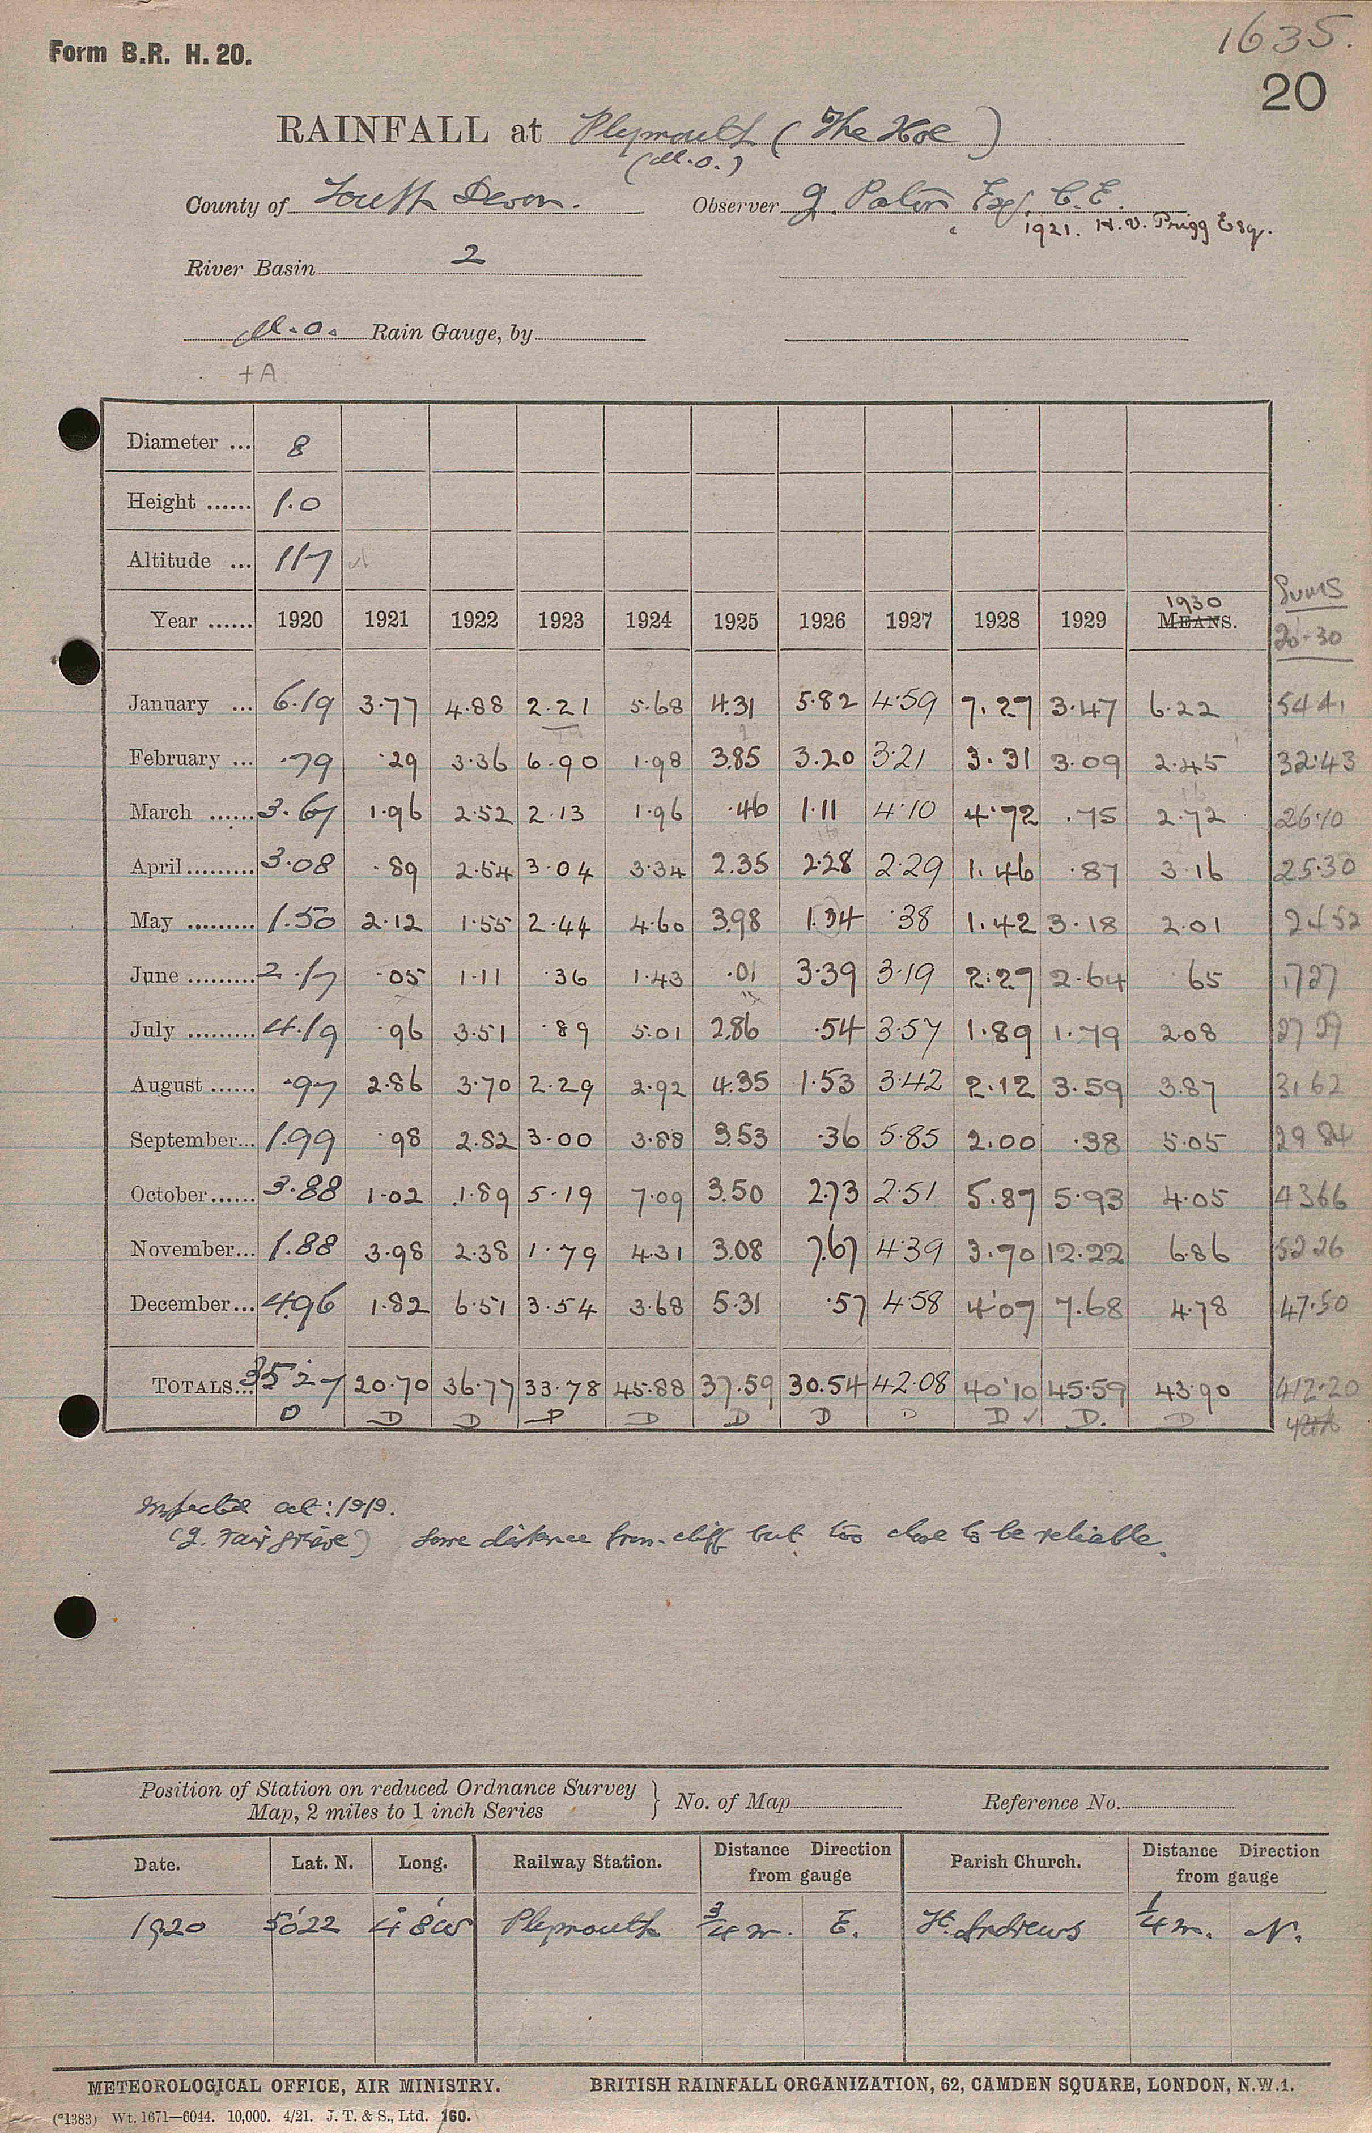 1635.
Form B.R. H. 20.
20
RAINFALL at Plymouth (The Hoe)
(M.O.)
County of South Devon. Observer J. Paton Esq. C.E.
1921. H.V. Prigg Esq.
River Basin 2
M.O. Rain Gauge, by
+A
Diameter ... 8
Height ...... 1.0
Altitude ... 117
Sums
Year ...... 1920 1921 1922 1923 1924 1925 1926 1927 1928 1929 1930 MEANS. 20-30
January ... 6.19 3.77 4.88 2.21 5.68 4.31 5.82 4.59 7.27 3.47 6.22 54.41
February ... .79 .29 3.36 6.90 1.98 3.85 3.20 3.21 3.31 3.09 2.45 32.43
March ...... 3.67 1.96 2.52 2.13 1.96 .46 1.11 4.10 4.72 .75 2.72 26.10
April ......... 3.08 .89 2.54 3.04 3.34 2.35 2.28 2.29 1.46 .87 3.16 25.30
May ......... 1.50 2.12 1.55 2.44 4.60 3.98 1.34 .38 1.42 3.18 2.01 24.52
June ......... 2.17 .05 1.11 .36 1.43 .01 3.39 3.19 2.27 2.64 .65 17.27
July ......... 4.19 .96 3.51 .89 5.01 2.86 .54 3.57 1.89 1.79 2.08 27.29
August ...... .97 2.86 3.70 2.29 2.92 4.35 1.53 3.42 2.12 3.59 3.87 31.62
September... 1.99 .98 2.82 3.00 3.88 3.53 .36 5.85 2.00 .38 5.05 29.84
October...... 3.88 1.02 1.89 5.19 7.09 3.50 2.73 2.51 5.87 5.93 4.05 43.66
November... 1.88 3.98 2.38 1.79 4.31 3.08 7.67 4.39 3.70 12.22 6.86 52.26
December... 4.96 1.82 6.51 3.54 3.68 5.31 .57 4.58 4.07 7.68 4.78 47.50
TOTALS... 35.27 20.70 36.77 33.78 45.88 37.59 30.54 42.08 40.10 45.59 43.90 412.20
D D D D D D D D D ✓ D. D
Inspected Oct: 1919.
(J. Fairgrieve) Some distance from cliff but too close to be reliable.
Position of Station on reduced Ordnance Survey
Map, 2 miles to 1 inch Series } No. of Map Reference No.
Date. Lat. N. Long. Railway Station. Distance Direction from gauge Parish Church. Distance Direction from gauge
1920 50°22 4°8'W Plymouth 3/4 m. E. St. Andrews 1/4 m. N.
METEOROLOGICAL OFFICE, AIR MINISTRY. BRITISH RAINFALL ORGANIZATION, 62, CAMDEN SQUARE, LONDON, N.W.1.
(*1383) Wt. 1671—6044. 10,000. 4/21. J. T. & S., Ltd. 160.